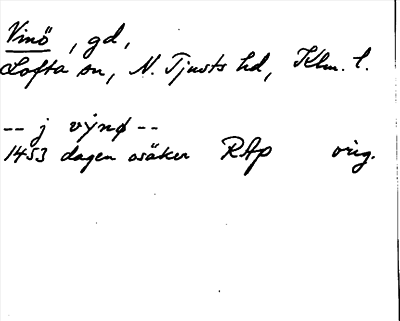 Vinö, gd,
Lofta sn, N. Tjusts hd, Klm. l.
-- j vynø --
1453 dagen osäker RAp orig.